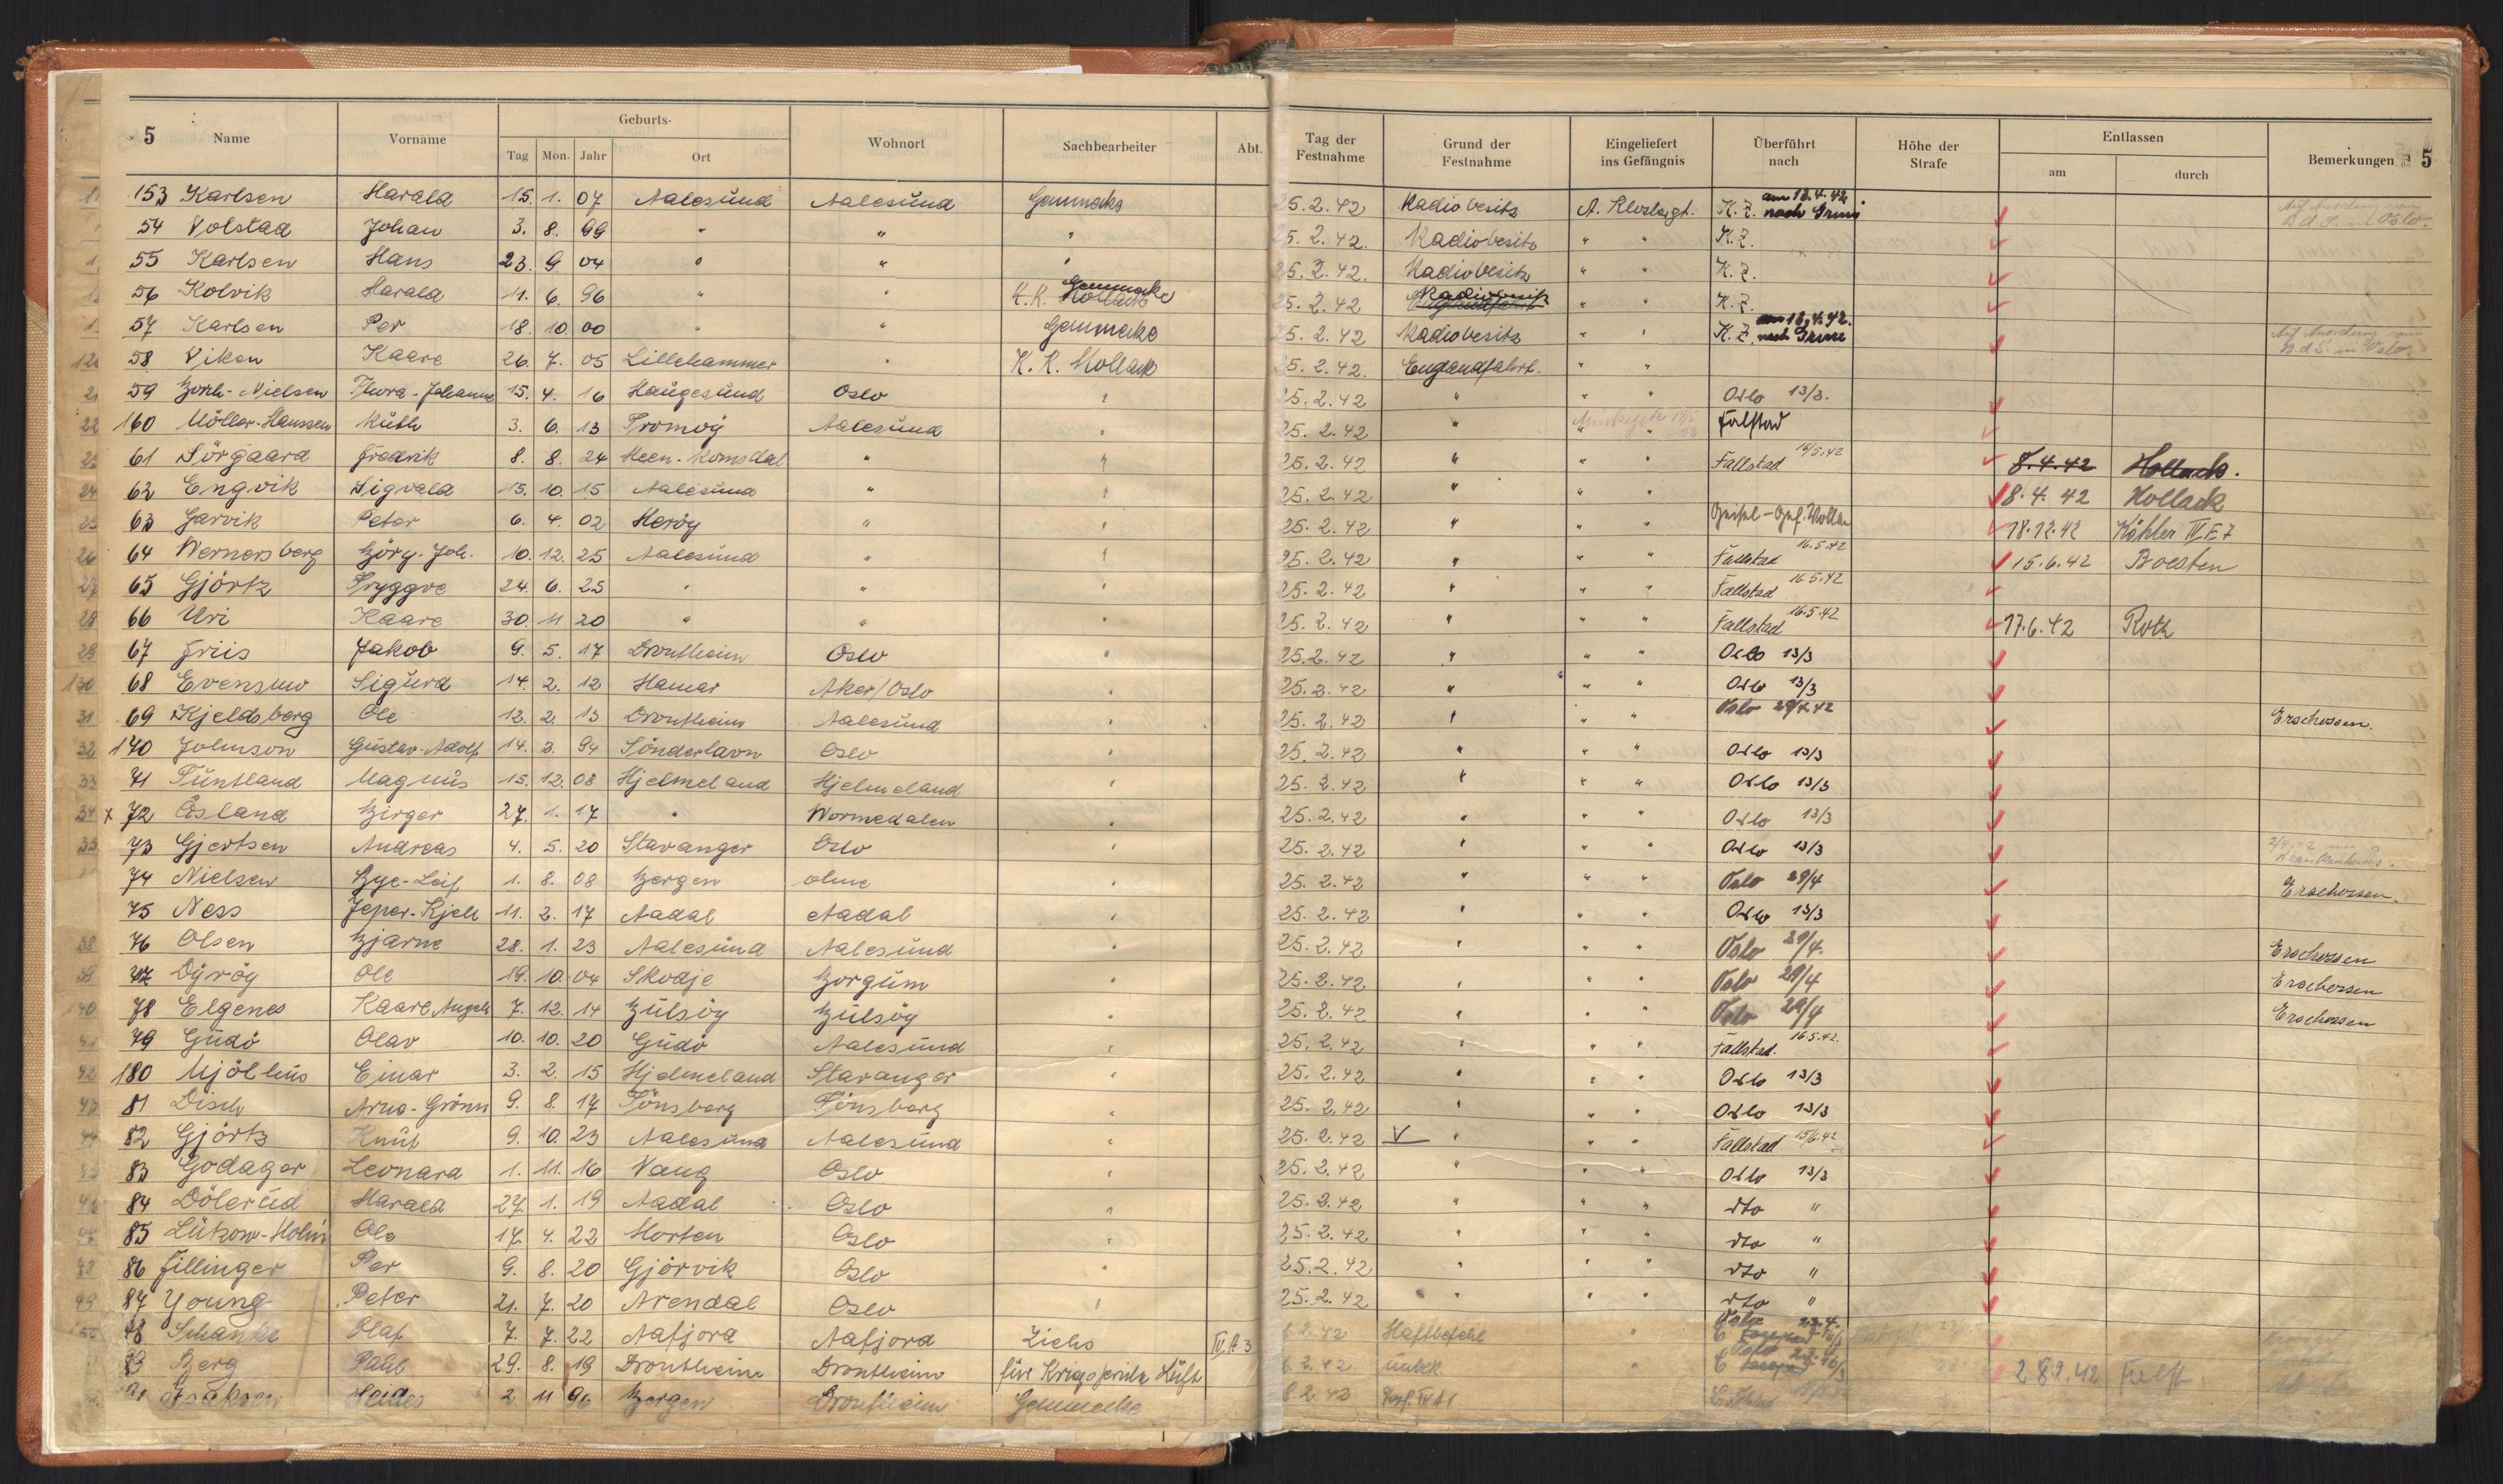 5 Name Vorname Geburts- Tag Mon. Jahr Ort Wohnort Sachbearbeiter Abt. Tag der Festnahme Grund der Festnahme Eingeliefert ins Gefängnis Überführt nach Höhe der Strafe Entlassen am durch Bemerkungen 5
153 Karlsen Harald 15. 1. 07 Aalesund Aalesund Gemmecke 25.2.42 Radiobesitz K.Z. am 18.4.42 nach Grini
54 Volstad Johan 3. 8. 99 " " " 25.2.42. Radiobesitz " " K.Z.
55 Karlsen Hans 23. 9. 04 " " " 25.2.42. Radiobesitz " " K.Z.
56 Kolvik Harald 11. 6. 96 " " K.K. Hollack Gemmecke 25.2.42 Radiobesitz " " K.Z.
57 Karlsen Per 18. 10. 00 " " Gemmecke 25.2.42 Radiobesitz " " K.Z. am 18.4.42. nach Grini
58 Viken Kaare 26. 7. 05 Lillehammer " K.K. Hollack 25.2.42. Englandfahrt. " "
59 Nielsen Thora-Johanne 15. 4. 16 Haugesund Oslo " 25.2.42 " " " Oslo 13/3.
160 Möller-Hanssen Ruth 3. 6. 13 Tromöy Aalesund " 25.2.42 " " " Falstad
61 Sörgaard Fredrik 8. 8. 24 Heen-Romsdal " " 25.2.42 " " " Fallstad 16/5.42 8.4.42 Hollack.
62 Engvik Sigvald 15. 10. 15 Aalesund " " 25.2.42 " " " 8.4.42 Hollack
63 Garvik Peter 6. 4. 02 Heröy " " 25.2.42 " " " 18.12.42 Köhler IV E 7
64 Wernersberg Björg-Joh. 10. 12. 25 Aalesund " " 25.2.42 " " " Fallstad 16.5.42 15.6.42 Boesten
65 Gjörtz Tryggve 24. 6. 25 " " " 25.2.42 " " " Fallstad 16.5.42
66 Uri Kaare 30. 11 20 " " " 25.2.42 " " " Fallstad 16.5.42 17.6.42 Roth
67 Friis Jakob 9. 5. 17 Drontheim Oslo " 25.2.42 " " " Oslo 13/3
130 68 Evensmo Sigurd 14. 2. 12 Hamar Aker/Oslo " 25.2.42 " " " Oslo 13/3
31 69 Kjeldsberg Ole 12. 2. 13 Drontheim Aalesund " 25.2.42 " " " Oslo 29/4.42 Erschossen.
32 170 Johnson Gustav-Adolf 14. 3. 94 Sönderlavn Oslo " 25.2.42 " " " Oslo 13/3
33 71 Tuntland Magnus 15. 12. 08 Hjelmeland Hjelmeland " 25.2.42 " " " Oslo 13/3
34 x 72 Åsland Birger 27. 1. 17 " Wormedalen " 25.2.42 " " " Oslo 13/3
35 73 Gjertsen Andreas 4. 5. 20 Stavanger Oslo " 25.2.42 " " " Oslo 13/3
74 Nielsen Bye-Leif 1. 8. 08 Bergen ohne " 25.2.42 " " " Oslo 29/4 Erschossen.
75 Ness Jeper-Kjell 11. 2. 17 Aadal Aadal " 25.2.42 " " " Oslo 13/3
38 76 Olsen Bjarne 28. 1. 23 Aalesund Aalesund " 25.2.42 " " " Oslo 29/4. Erschossen
39 77 Dyröy Ole 19. 10. 04 Skodje Borgum " 25.2.42 " " " Oslo 29/4 Erschossen
40 78 Elgenes Kaare Angell 7. 12. 14 Bulsöy Bulsöy " 25.2.42 " " " Oslo 29/4 Erschossen
41 79 Gudö Olav 10. 10. 20 Gudö Aalesund " 25.2.42 " " " Fallstad. 16.5.42.
42 180 Mjölhus Einar 3. 2. 15 Hjelmeland Stavanger " 25.2.42 " " " Oslo 13/3
43 81 Disch Arne-Grönn 9. 8. 17 Tönsberg Tönsberg " 25.2.42 " " " Oslo 13/3
44 82 Gjörtz Knut 9. 10. 23 Aalesund Aalesund " 25.2.42 V " " " Fallstad 15/6.42
83 Godager Leonard 1. 11. 16 Vang Oslo " 25.2.42 " " " Oslo 13/3
84 Dölerud Harald 27. 1. 19 Aadal Oslo " 25.2.42 " " " dto "
85 Lützow-Holm Ole 17. 4. 22 Horten Oslo " 25.2.42 " " " dto "
86 Fillinger Per 9. 8. 20 Gjörvik Oslo " 25.2.42 " " " dto "
49 87 Young Peter 21. 7. 20 Arendal Oslo " 25.2.42 " " " dto "
Schanke Olaf 7. 7. 22 Aafjord Aafjord Zichs IV A 3 6.2.42 Haftbefehl " Oslo
Berg Paul 29. 8. 19 Drontheim Drontheim für 6.2.42 unbek. " 28.2.42
Isaksen 2. 11 Bergen Drontheim Gemmecke 8.2.42